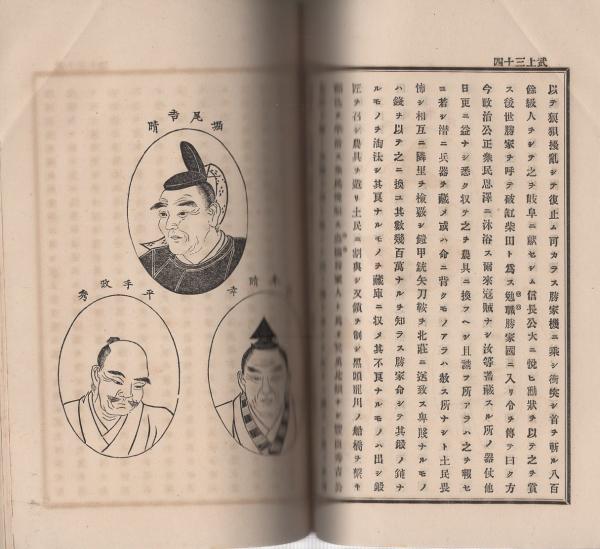 武上三十四
以テ狼狽擾亂シテ復止ム可カラス勝家機ニ乘シ衝突シ首ヲ斬ル八百
餘級人ヲシテ之ヲ岐阜ニ獻セシム信長公大ニ悅ヒ勳狀ヲ以テ之ヲ賞
ス後世勝家ヲ呼テ破缸柴田ト爲ス勉職勝家國ニ入リ令ヲ傳テ曰ク方
今政治公正衆民恩澤ニ沐浴ス爾來寇賊ナシ汝等蓄藏スル所ノ器仗他
日更ニ益ナシ悉ク收テ之ヲ農具ニ換フヘシ且請フ所アラハ之ヲ報セ
ヨ若シ潛ニ兵器ヲ藏メ或ハ命ニ背クモノアラハ赦ス所ナシト土民畏
怖シ相互ニ隣里ヲ檢覈シ鎧甲銃矢刀鞍ヲ北莊ニ送致ス卑賤ナルモノ
ハ錢ヲ以テ之ニ換ユ其數幾百萬ナルヲ知ラス勝家命シテ其鍛ノ鏈ナ
ルモノヲ淘汰シ其良ナルモノヲ藏庫ニ收メ其不良ナルモノハ出シ鍛
匠ヲ召シ農具ヲ造リ土民ニ割與シ又鎖ヲ制シ黑頭龍川ノ船橋ヲ繋キ
堀尾吉晴
晴幸
平手政秀